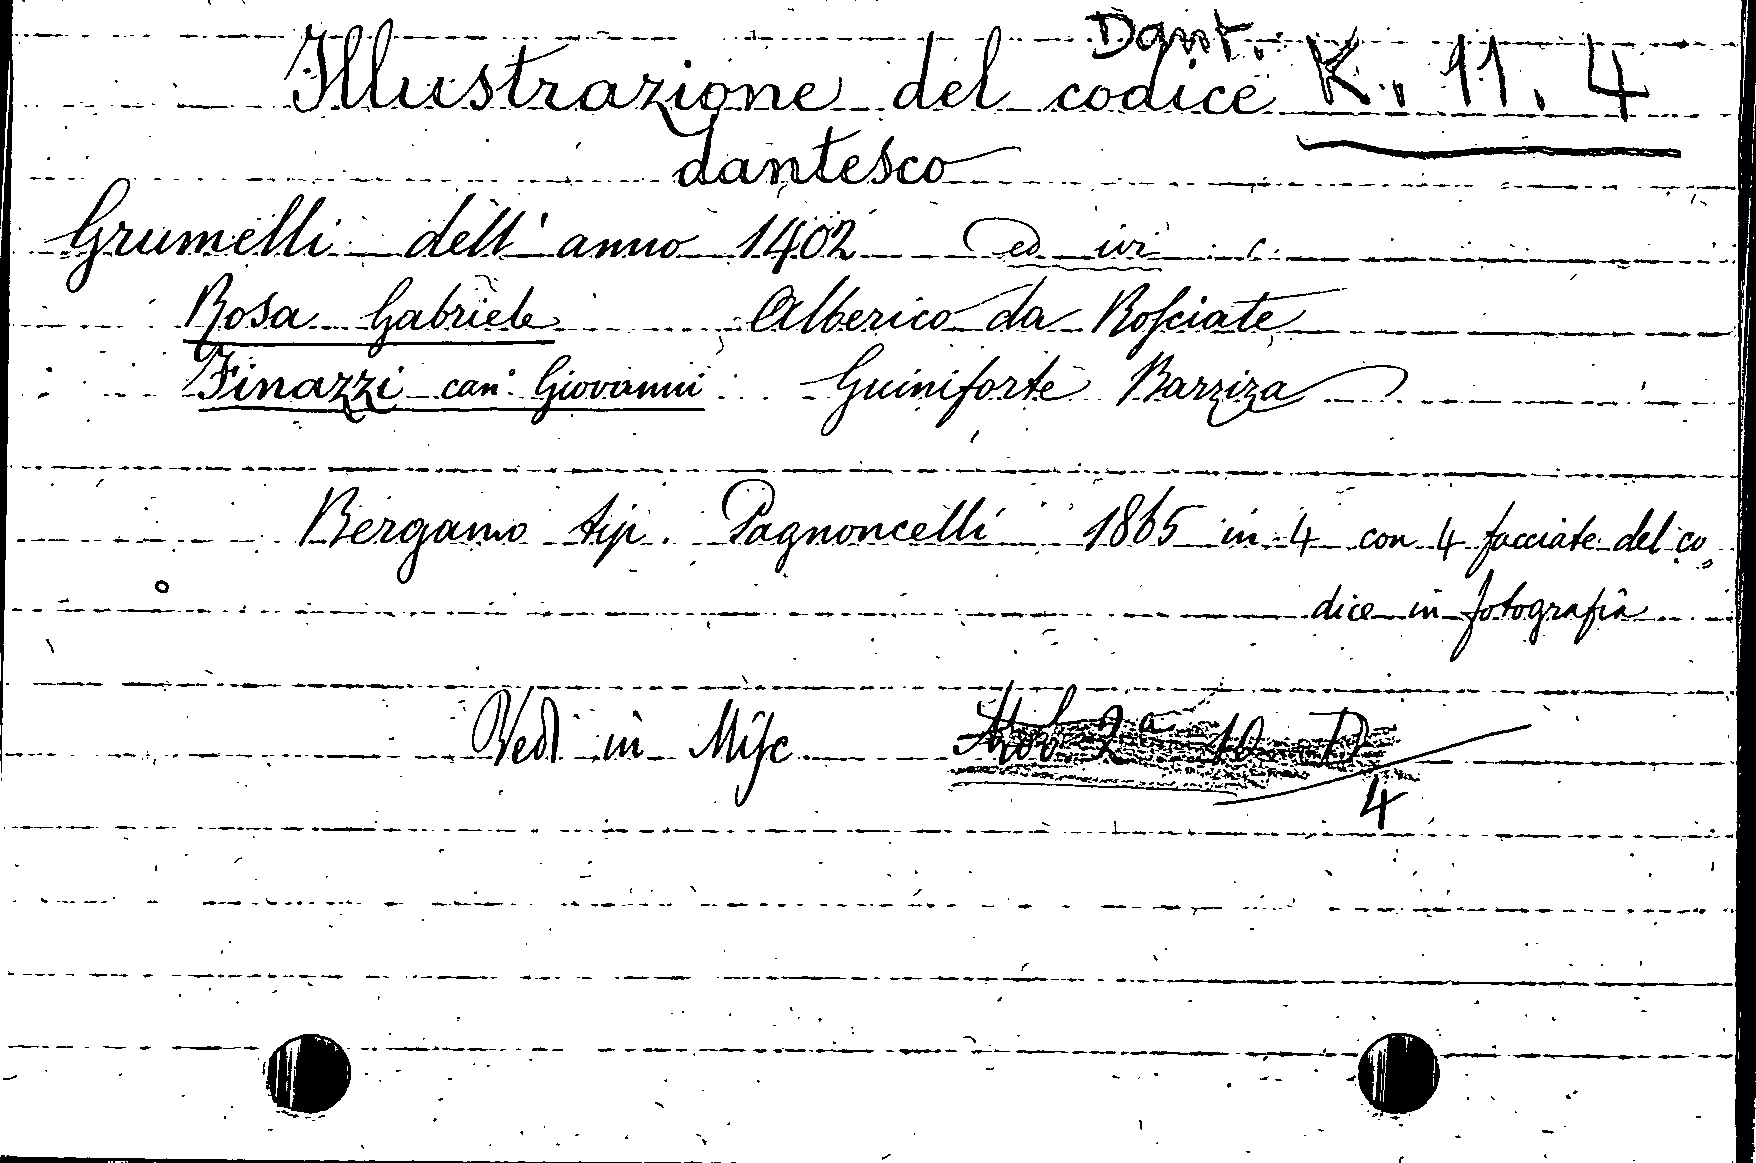 Dant. K. 11. 4
Illustrazione del codice
dantesco
Grumelli dell'anno 1402 ed ivi
Rosa Gabriele Alberico da Rosciate
Finazzi can° Giovanni Guiniforte Barziza
Bergamo tip. Pagnoncelli 1865 in 4 con 4 facciate del co
dice in fotografia
Vedi in Misc 2ª 10 D
4